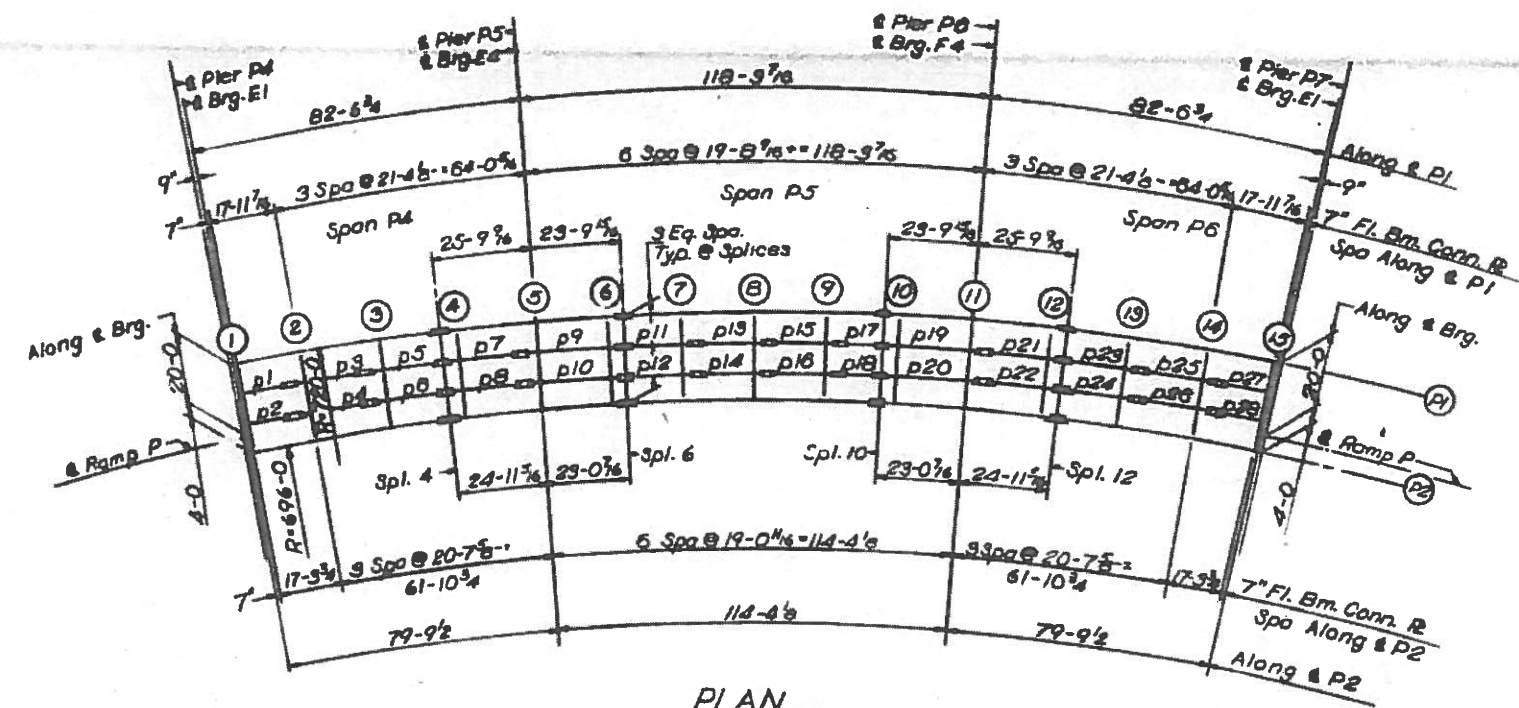 ℄ Pier P4
℄ Brg. E1
℄ Pier P5
℄ Brg. E4
℄ Pier P6
℄ Brg. F4
℄ Pier P7
℄ Brg. E1
82-6 3/4
118-9 7/16
82-6 3/4
Along ℄ P1
9"
7"
17-11 7/16
3 Spa @ 21-4 1/8 - = 64-0 5/16
6 Spa @ 19-8 9/16 + = 118-9 7/16
3 Spa @ 21-4 1/8 - = 64-0 5/16
17-11 7/16
9"
7" Fl. Bm. Conn. ℞
Spa Along ℄ P1
Span P4
Span P5
Span P6
25-9 9/16
23-9 15/16
3 Eq. Spa.
Typ. @ Splices
23-9 15/16
25-9 9/16
1
2
3
4
5
6
7
8
9
10
11
12
13
14
15
Along ℄ Brg.
20-0
Along ℄ Brg.
20-0
p1
p3
p5
p7
p9
p11
p13
p15
p17
p19
p21
p23
p25
p27
p2
p4
p6
p8
p10
p12
p14
p16
p18
p20
p22
p24
p26
p28
P1
℄ Ramp P
4-0
R=696-0
℄ Ramp P
P2
4-0
Spl. 4
24-11 5/16
23-0 7/16
Spl. 6
Spl. 10
23-0 7/16
24-11 5/16
Spl. 12
7"
17-3 3/4
3 Spa @ 20-7 5/8 - =
61-10 3/4
6 Spa @ 19-0 11/16 = 114-4 1/8
3 Spa @ 20-7 5/8 - =
61-10 3/4
17-3 3/4
7" Fl. Bm. Conn. ℞
Spa Along ℄ P2
79-9 1/2
114-4 1/8
79-9 1/2
Along ℄ P2
PLAN